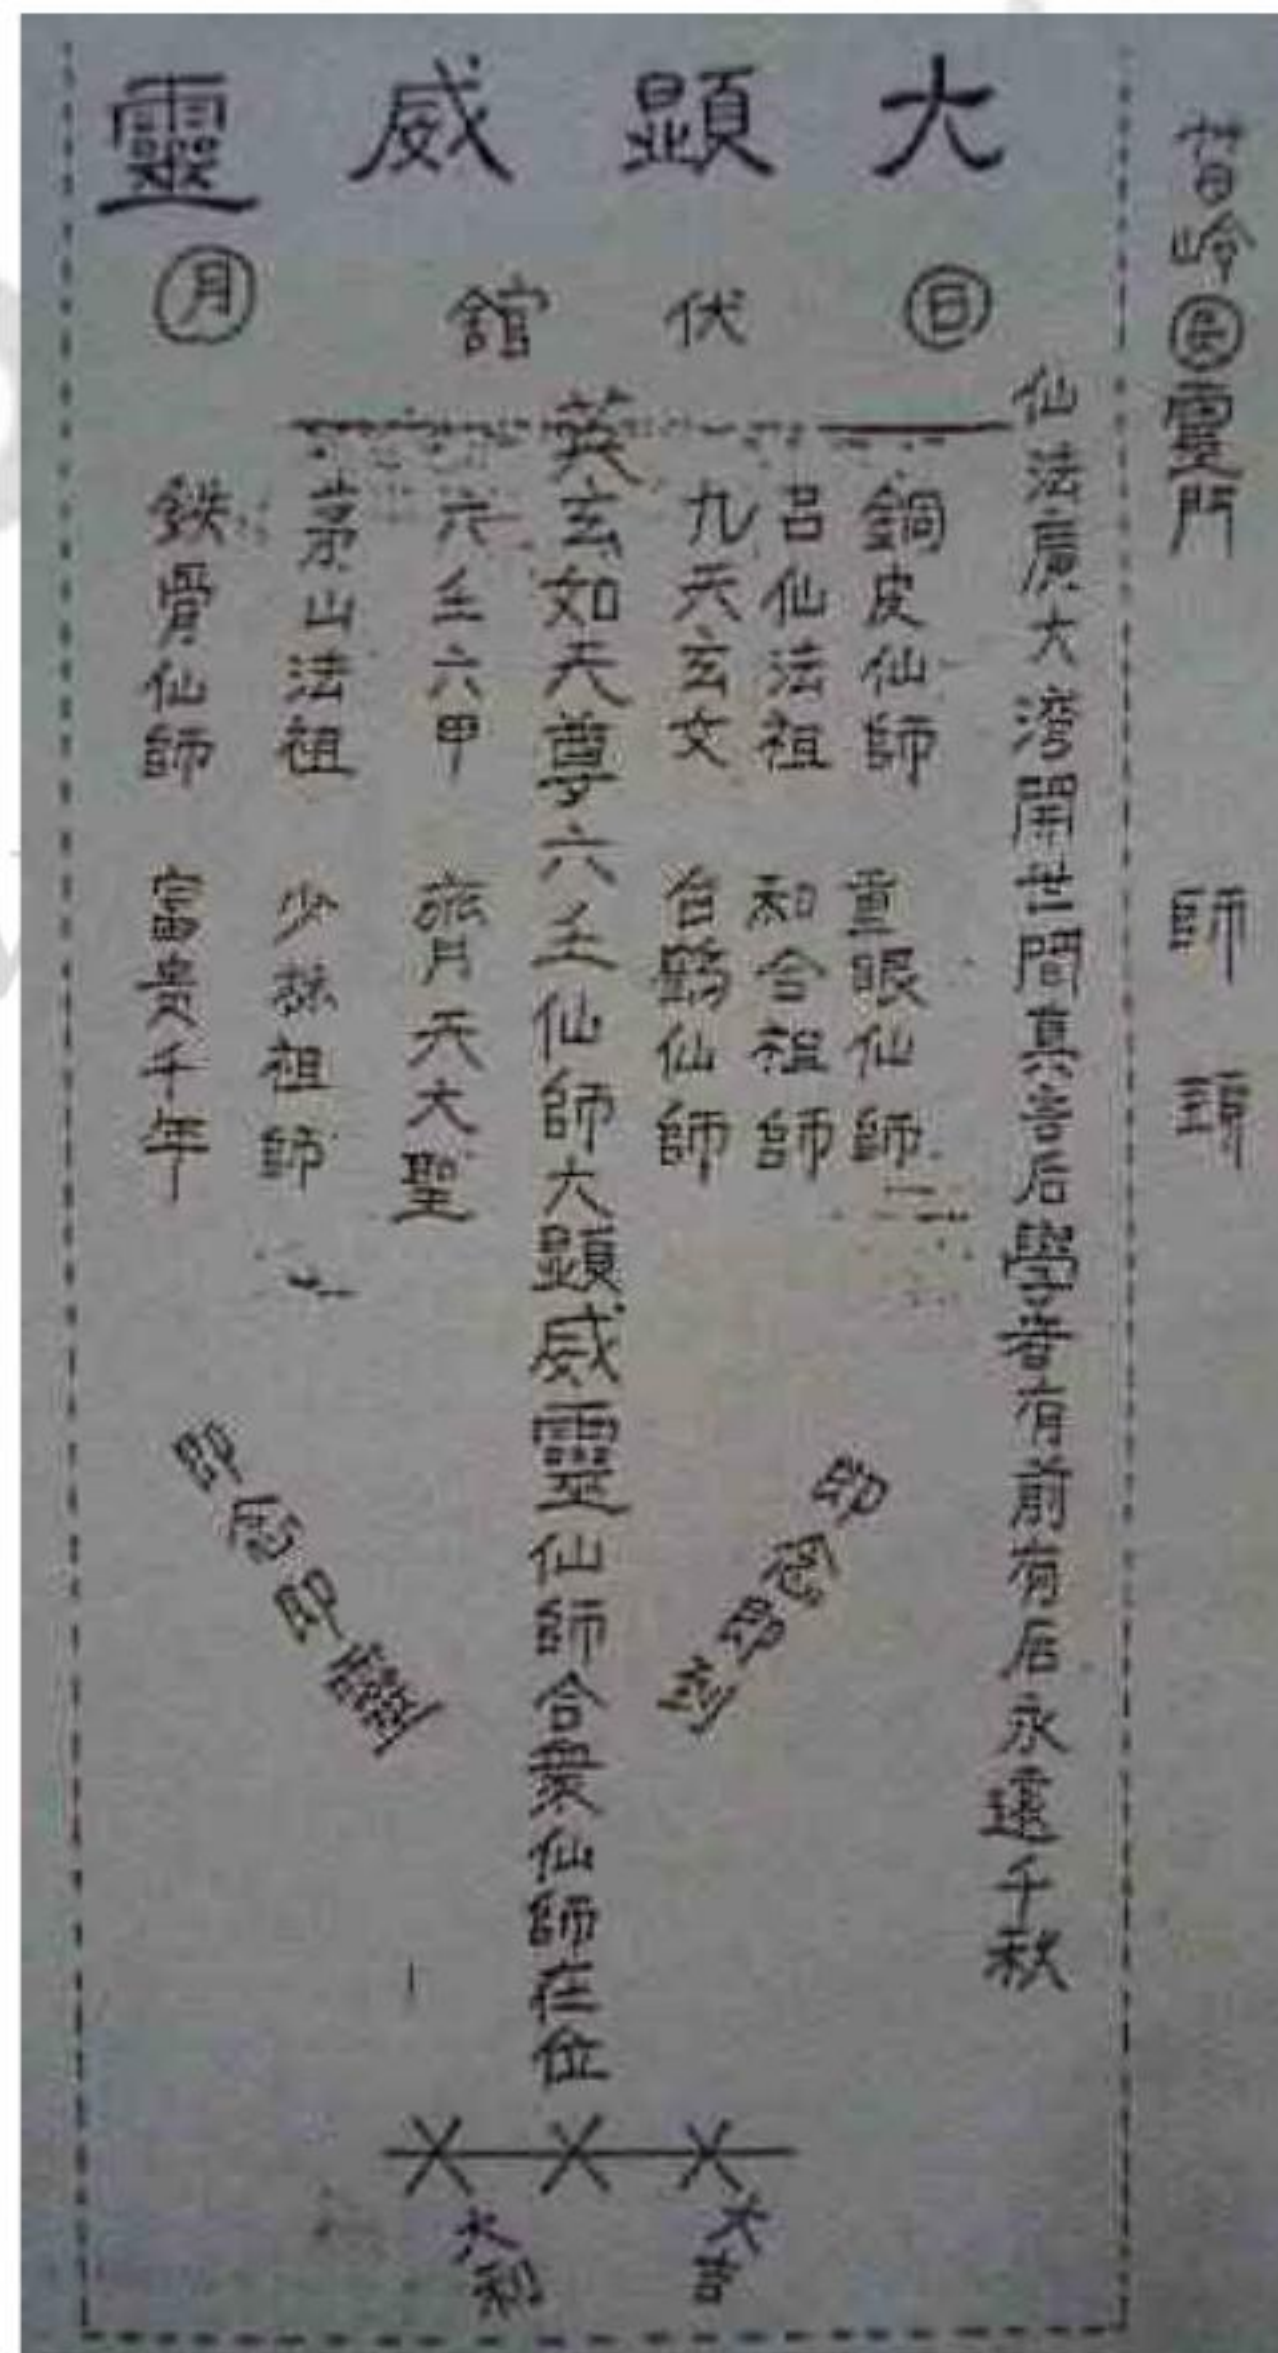 師
大顯威靈
日
伏
館
月
仙法廣大湾開世間真言后學者有前有后永遠千秋
銅皮仙師
重眼仙師
呂仙法祖
和合祖師
九天玄女
台鶴仙師
英玄如天尊六壬仙師大顯威靈仙師合衆仙師在位
六壬六甲
齊天大聖
茅山法祖
少林祖師
鉄骨仙師
富貴千年
即念即到
即念即靈
大吉
大利